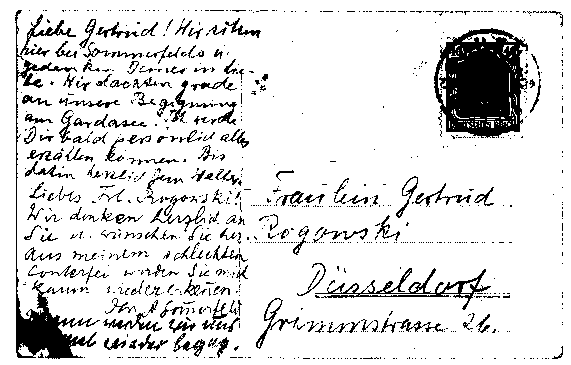 Liebe Gertrud! Wir sitzen
hier bei Sommerfelds u.
gedenken Deiner in Lie-
be. Wir dachten grade
an unsere Begegnung
am Gardasee. Ich werde
Dir bald persönlich alles
erzählen können. Bis
dahin herzlich Dein Walter
Liebes Frl. Rogowski!
Wir denken herzlich an
Sie u. wünschen Sie her.
Aus meinem schlechten
Conterfei werden Sie mich
kaum wiedererkennen!
Ihr A Sommerfeld
wann werden wir uns
wieder begeg.
Fräulein Gertrud
Rogowski
Düsseldorf
Grimmstrasse 26.